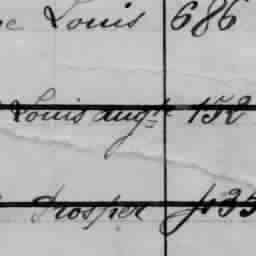 Louis 686
Louis aug.te 152
Prosper